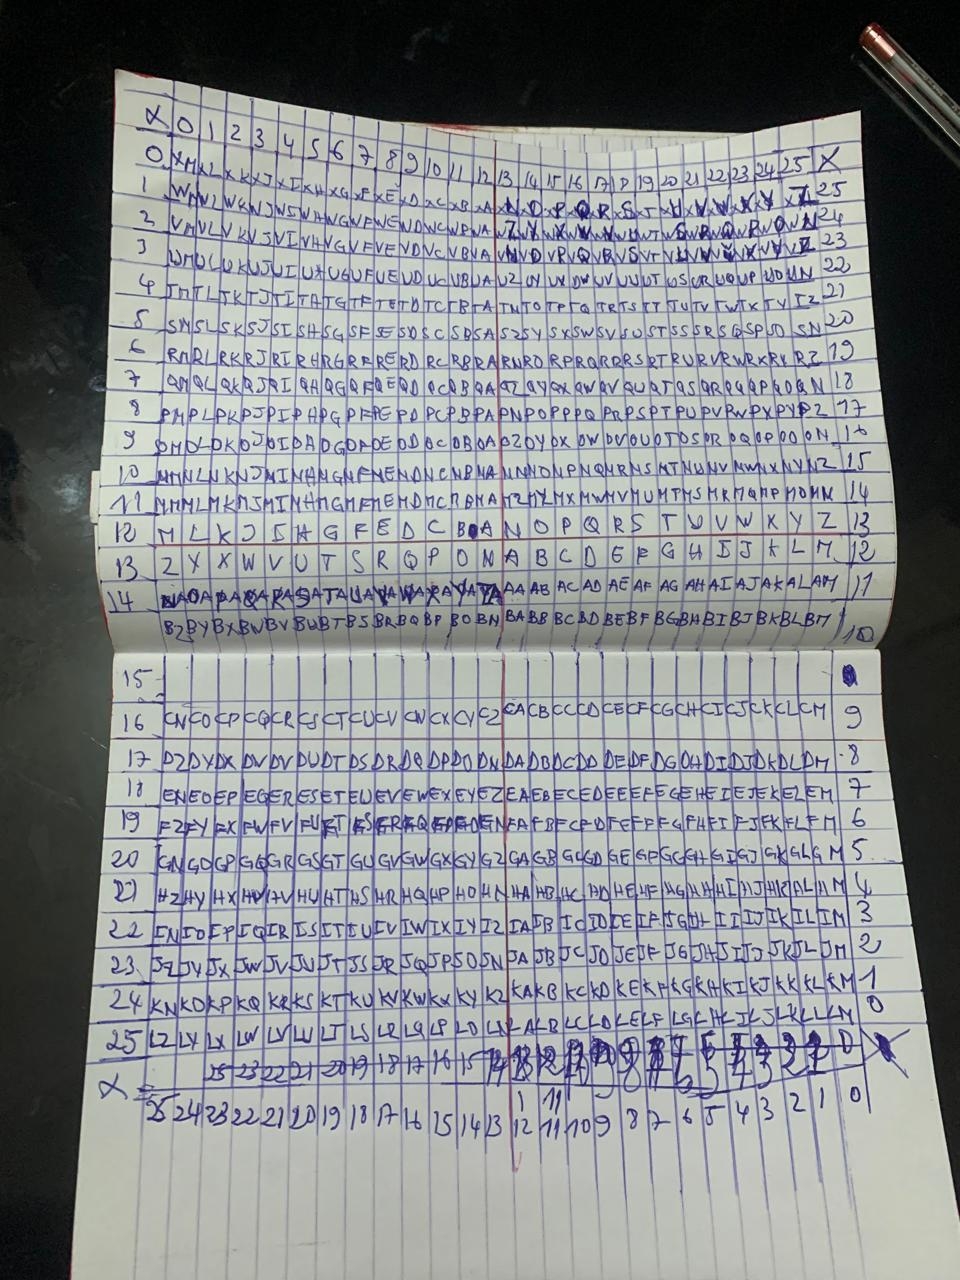 X 0 1 2 3 4 5 6 7 8 9 10 11 12 13 14 15 16 17 18 19 20 21 22 23 24 25 X
0 XM XL XK XJ XI XH XG XF XE XD XC XB XA XN XO XP XQ XR XS XT XU XV XW XX XY XZ 25
1 24
2 VM VL VK VJ VI VH VG VF VE VD VC VB VA 23
3 UM UL UK UJ UI UH UG UF UE UD UC UB UA UZ UY UX UW UV UU UT US UR UQ UP UO UN 22
4 TM TL TK TJ TI TH TG TF TE TD TC TB TA TN TO TP TQ TR TS TT TU TV TW TX TY TZ 21
5 SM SL SK SJ SI SH SG SF SE SD SC SB SA SZ SY SX SW SV SU ST SS SR SQ SP SO SN 20
6 RM RL RK RJ RI RH RG RF RE RD RC RB RA RN RO RP RQ RR RS RT RU RV RW RX RY RZ 19
7 QM QL QK QJ QI QH QG QF QE QD QC QB QA QZ QY QX QW QV QU QT QS QR QQ QP QO QN 18
8 PM PL PK PJ PI PH PG PF PE PD PC PB PA PN PO PP PQ PR PS PT PU PV PW PX PY PZ 17
9 OM OL OK OJ OI OH OG OF OE OD OC OB OA OZ OY OX OW OV OU OT OS OR OQ OP OO ON 16
10 NM NL NK NJ NI NH NG NF NE ND NC NB NA NN NO NP NQ NR NS NT NU NV NW NX NY NZ 15
11 MM ML MK MJ MI MH MG MF ME MD MC MB MA MZ MY MX MW MV MU MT MS MR MQ MP MO MN 14
12 M L K J I H G F E D C B A N O P Q R S T U V W X Y Z 13
13 Z Y X W V U T S R Q P O N A B C D E F G H I J K L M 12
14 AA AB AC AD AE AF AG AH AI AJ AK AL AM 11
BZ BY BX BW BV BU BT BS BR BQ BP BO BN BA BB BC BD BE BF BG BH BI BJ BK BL BM 10
15
16 CN CO CP CQ CR CS CT CU CV CW CX CY CZ CA CB CC CD CE CF CG CH CI CJ CK CL CM 9
17 DZ DY DX DW DV DU DT DS DR DQ DP DO DN DA DB DC DD DE DF DG DH DI DJ DK DL DM 8
18 EN EO EP EQ ER ES ET EU EV EW EX EY EZ EA EB EC ED EE EF EG EH EI EJ EK EL EM 7
19 FZ FY FX FW FV FU FT FS FR FQ FP FO FN FA FB FC FD FE FF FG FH FI FJ FK FL FM 6
20 GN GO GP GQ GR GS GT GU GV GW GX GY GZ GA GB GC GD GE GF GG GH GI GJ GK GL GM 5
21 HZ HY HX HW HV HU HT HS HR HQ HP HO HN HA HB HC HD HE HF HG HH HI HJ HK HL HM 4
22 IN IO IP IQ IR IS IT IU IV IW IX IY IZ IA IB IC ID IE IF IG IH II IJ IK IL IM 3
23 JZ JY JX JW JV JU JT JS JR JQ JP JO JN JA JB JC JD JE JF JG JH JI JJ JK JL JM 2
24 KN KO KP KQ KR KS KT KU KV KW KX KY KZ KA KB KC KD KE KF KG KH KI KJ KK KL KM 1
25 LZ LY LX LW LV LU LT LS LR LQ LP LO LN LA LB LC LD LE LF LG LH LI LJ LK LL LM 0
X 25 23 22 21 20 19 18 17 16 15 14 X
1 11
25 24 23 22 21 20 19 18 17 16 15 14 13 12 11 10 9 8 7 6 5 4 3 2 1 0